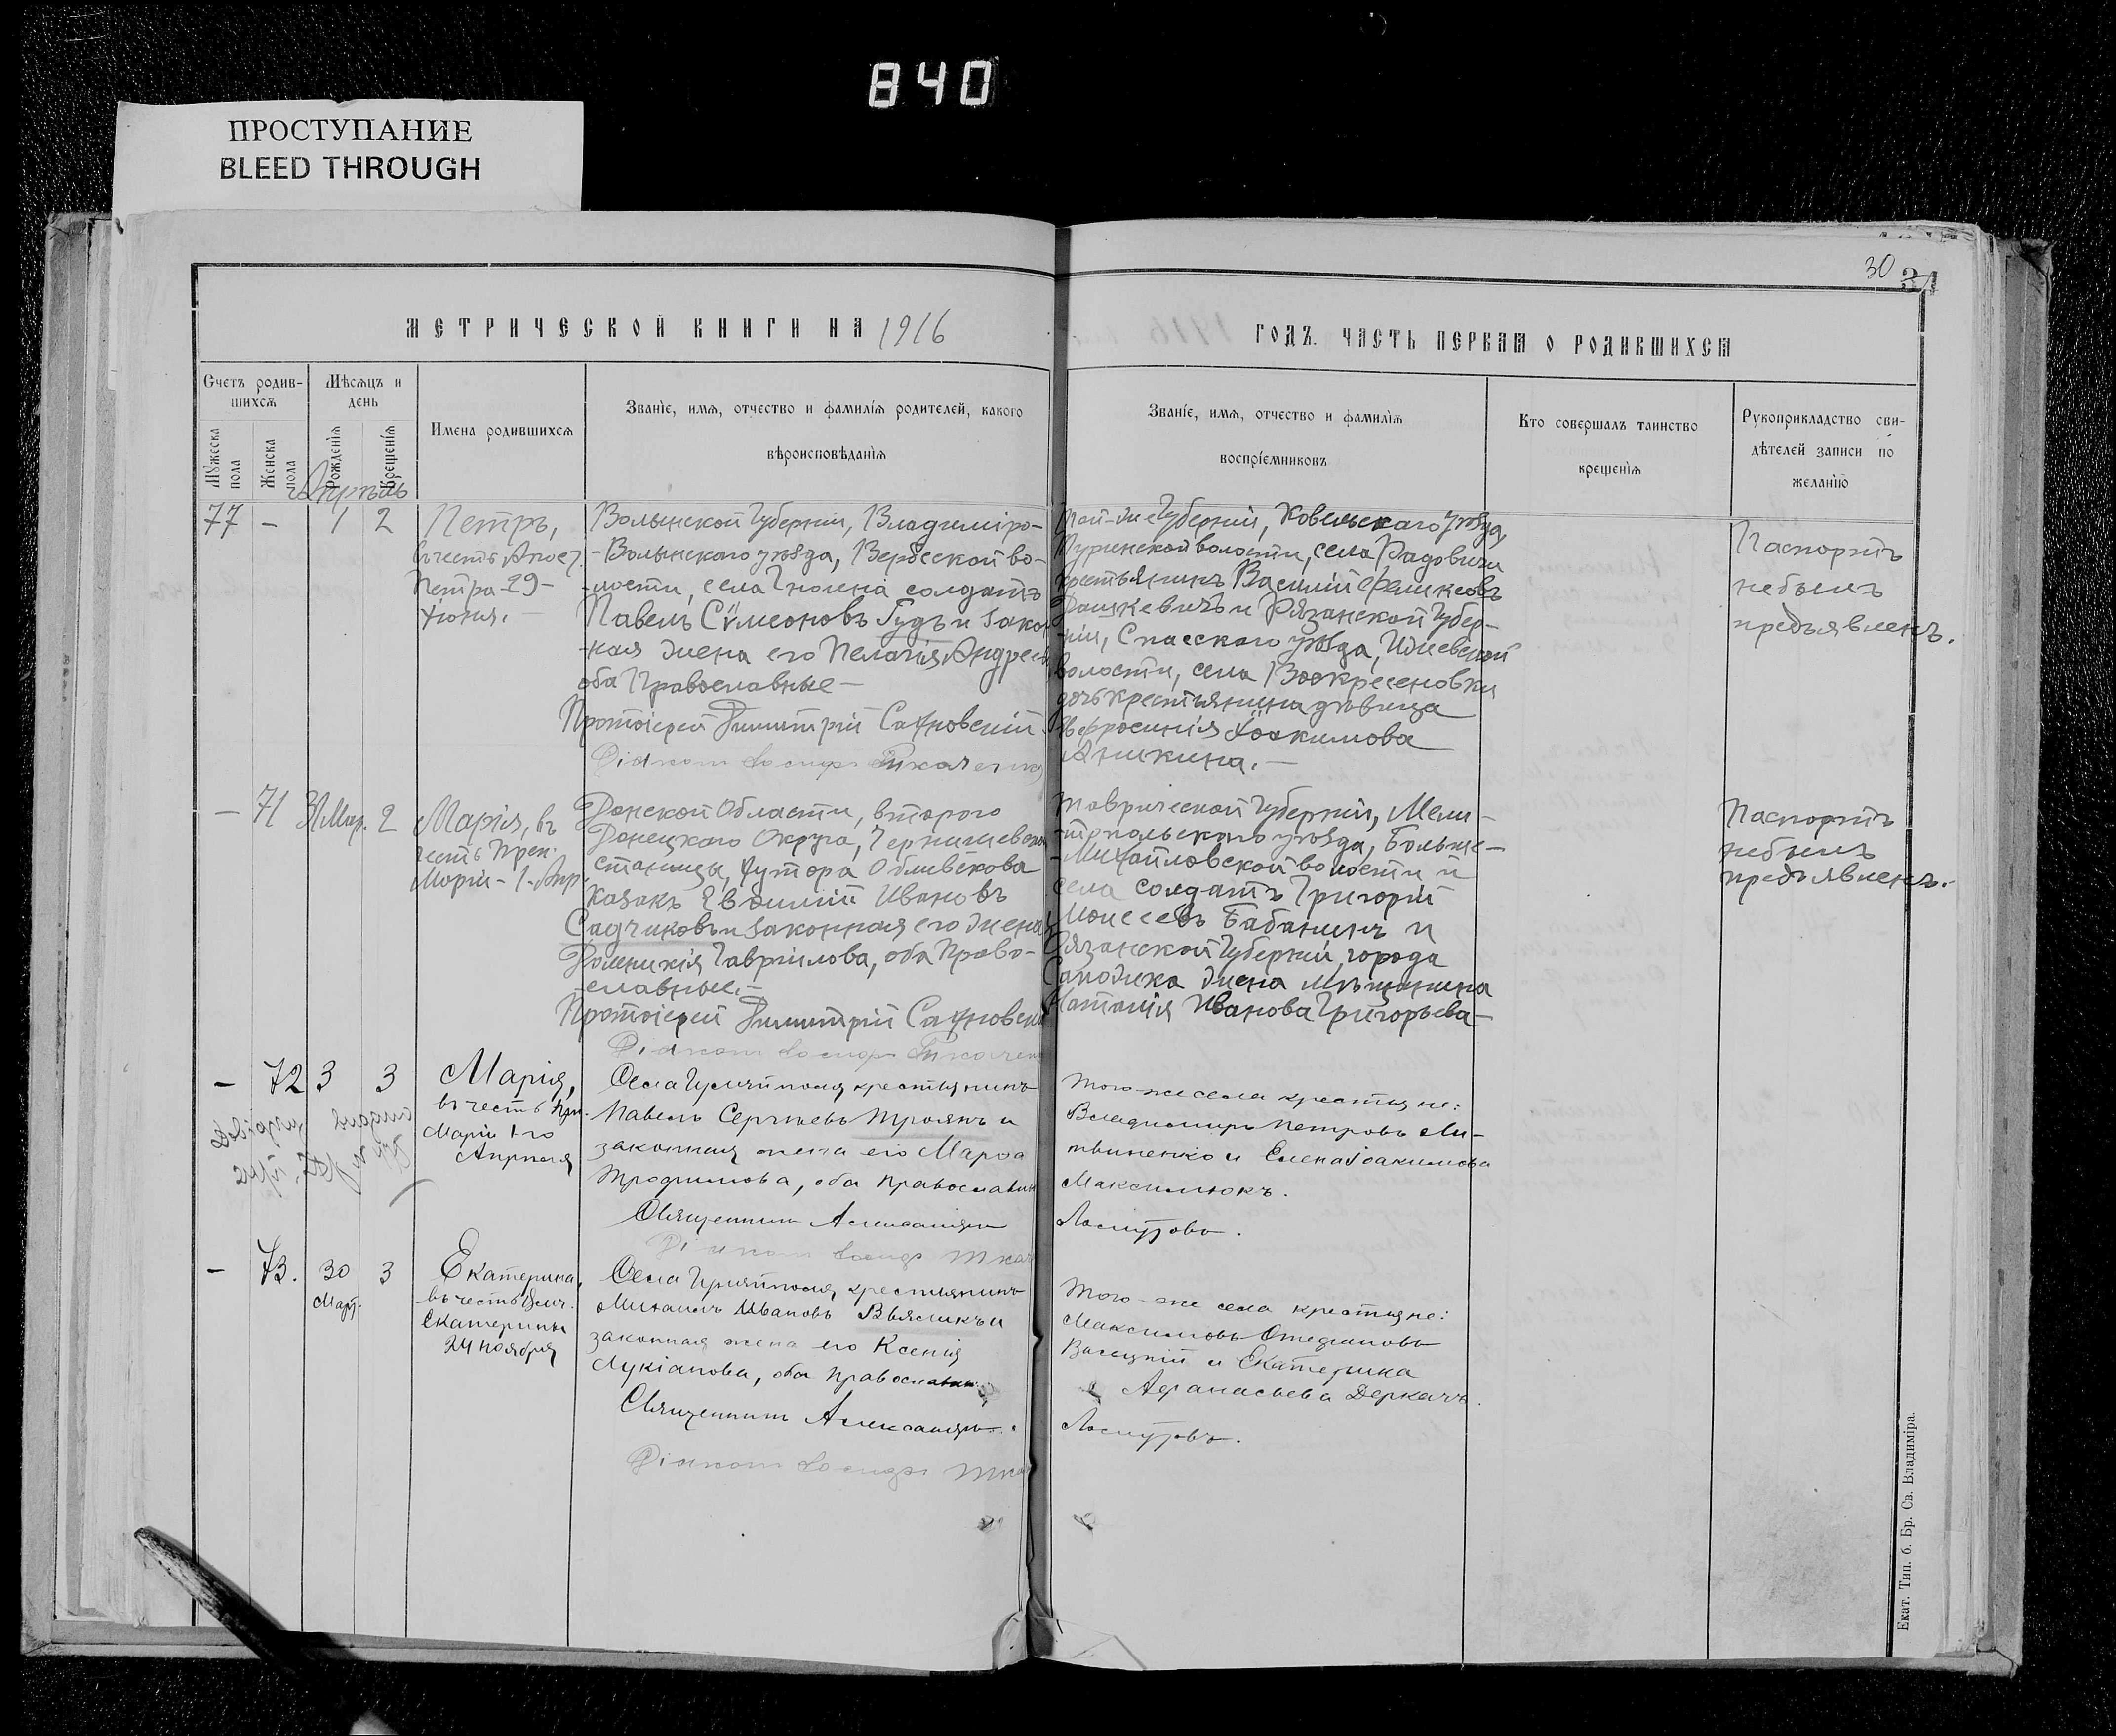 840
ПРОСТУПАНИЕ
BLEED THROUGH
30
31
МЕТРИЧЕСКОЙ КНИГИ НА 1916
ГОДЪ. ЧАСТЬ ПЕРВАЯ О РОДИВШИХСЯ
Счетъ родив-
шихся
Мѣсяцъ и
день
Мужеска
пола
Женска
пола
Рожденія
Крещенія
Имена родившихся
Званіе, имя, отчество и фамилія родителей, какого
вѣроисповѣданія
Званіе, имя, отчество и фамилія
воспріемниковъ
Кто совершалъ таинство
крещенія
Рукоприкладство сви-
дѣтелей записи по
желанію
Апрѣль
77 - 1 2
Петръ,
въ честь Апос.
Петра 29-
Іюня.-
Волынской Губерніи, Владиміро-
-Волынскаго уѣзда, Вербской во-
-лости, села солдатъ
Павелъ Сѵмеоновъ Гудъ и закон
-ная жена его Пелагія Андреева
оба Православные-
Протоіерей Димитрій Сахновскій.
Діаконъ Іосифъ Ткаченко
Той-же Губерніи, Ковельскаго уѣзда,
Туринской волости, села Радовичи
крестьянинъ Василій
Дашкевичъ и Рязанской Губер-
-ніи, Спасскаго уѣзда, Ижевской
волости, села Воскресеновки
дочь крестьянина дѣвица
Евфросинія Іоакимова
Аникина.-
Паспортъ
небылъ
предъявленъ.
- 71 31 Мар. 2
Марія, въ
честь Преп.
Маріи-1-Апр.
Донской Области, второго
Донецкаго Округа, Чернышевской
станицы, хутора Обливскова
казакъ Евѳимій Ивановъ
Садчиковъ и законная его жена
Домникія Гавріилова, оба Право-
славные.-
Протоіерей Димитрій Сахновскій
Діаконъ Іосифъ Ткаченко
Таврической Губерніи, Мели-
-топольскаго уѣзда, Больше-
-Михайловской волости и
села солдатъ Григорій
Моисеевъ Бабанинъ и
Рязанской Губерніи, города
жена мѣщанина
Наталія Иванова Григорьева-
Паспортъ
небылъ
предъявленъ.-
- 72 3 3
Марія,
въ честь пр.
Маріи 1-го
Апрѣля
Села Гуляйполя крестьянинъ
Павелъ Сергѣевъ Троянъ и
законная жена его Марѳа
Трофимова, оба православн
Священникъ Александръ
Діаконъ Іосифъ Ткач
Того-же села крестьяне:
Владиміръ Петровъ Ли-
твиненко и Елена Іоакимова
Максимюкъ.
- 73. 30 3
Март.
Екатерина,
въ честь Вмч.
Екатерины
24 ноября
Села Гуляйполя, крестьянинъ
Михаилъ Ивановъ и
законная жена его Ксенія
Лукіанова, оба православн.
Священникъ Александръ
Діаконъ Іосифъ Тка
Того-же села крестьяне:
Максимовъ Стефановъ
и Екатерина
Афанасьева Деркачъ.
Екат. Тип. б. Бр. Св. Владиміра.